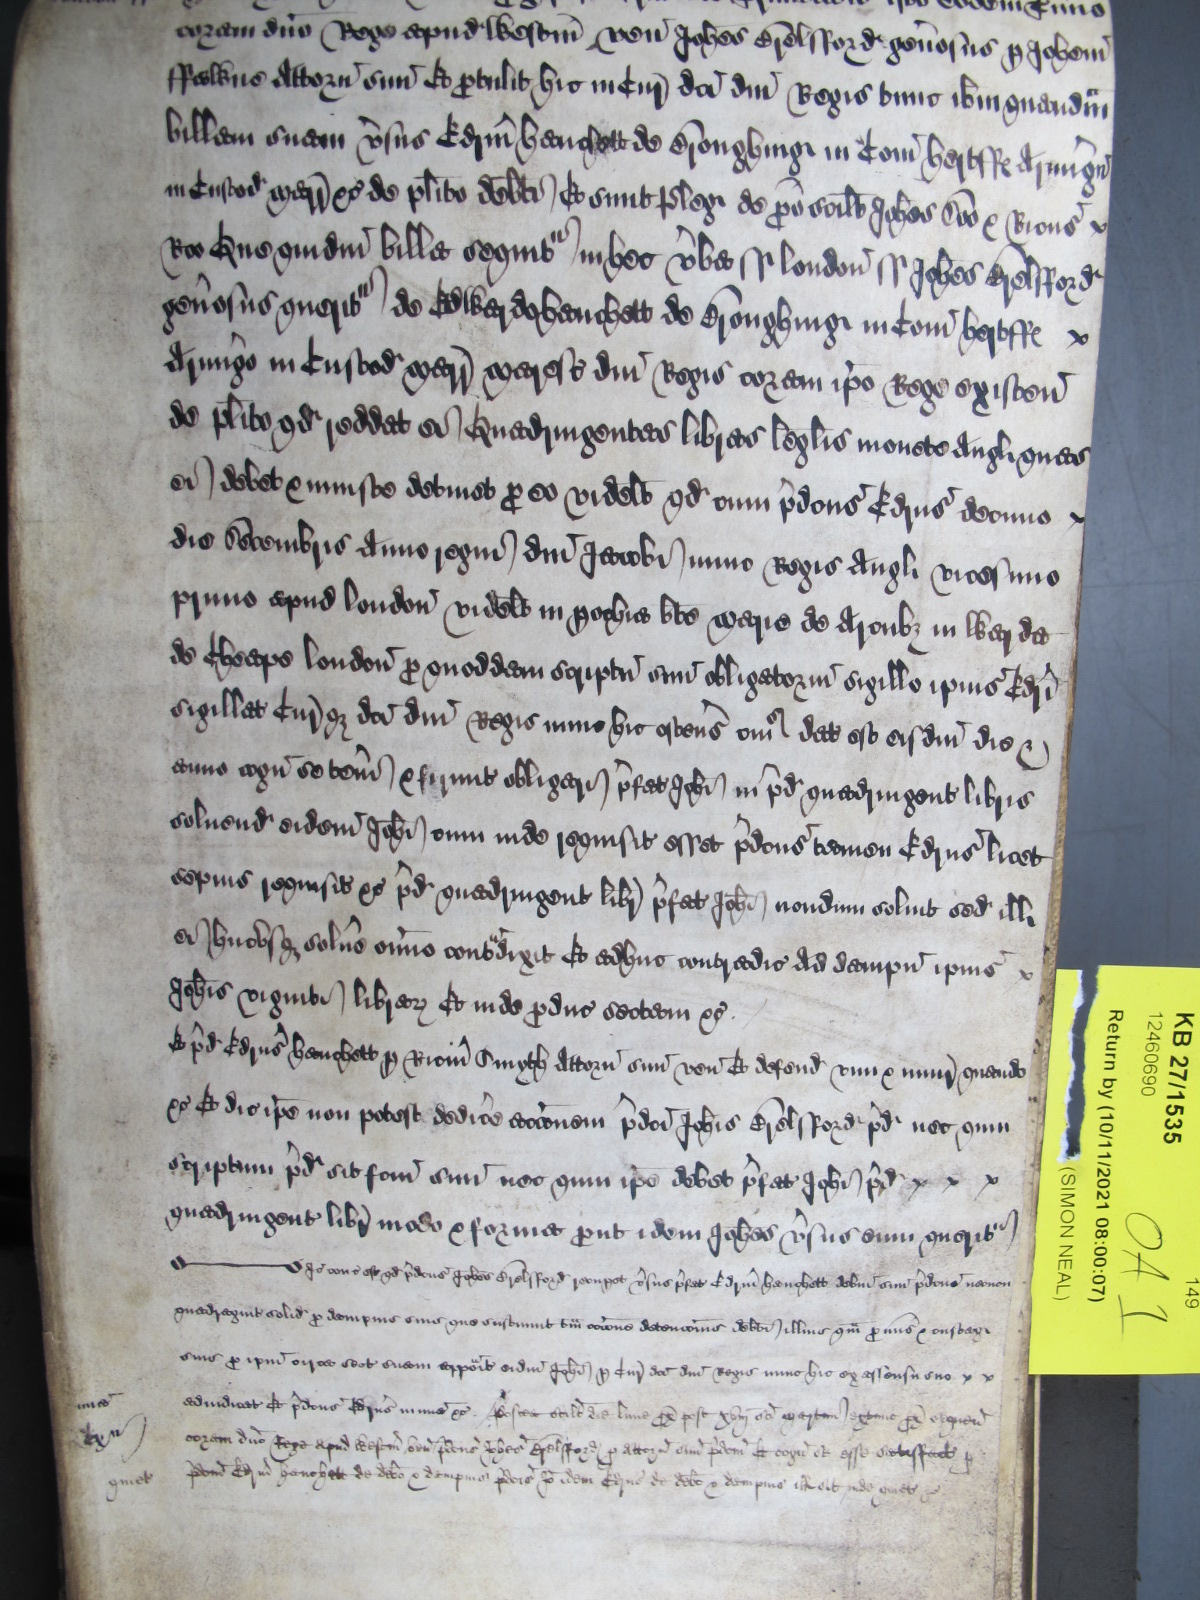 coram dno Rege apud Westm ven Johes Brelsford genosus p Johem
ffawkne Attorn suu Et ptulit hic in Cur dci dni Regis tunc ibm quandm
billam suam vsus Edrum hanchett de Broughinge in Com hertff Armigu
in Custod marr &c de plito debti Et sunt pleg de ps scilt Johes Doo & Ricus
Roo Que quidm billa sequit in hec vba ss london ss Johes Brelsford
genosus querit de Edwardo hanchett de Broughinge in Com hertff
Armigo in Custod marr maresc dni Regis coram ipo Rege existen
de plito qd reddat ei Quadringentas libras leglis monete Angli quas
ei debet & iniuste detinet p eo videlt qd cum pdcus Edrus decimo
die Decembris Anno regni dni Jacobi nunc Regis Angli vicesimo
primo apud london videlt in pochia bte marie de Arcubz in Warda
de Cheape london p quoddam scriptu suu obligatoriu sigillo ipius Edri
sigillat Curqz dci dni Regis nunc hic ostens cui dat est eisdm die &
anno cogn se teneri & firmit obligari pfat Johi in pd quadringent libris
soluend eidem Johi cum inde requisit esset pdcus tamen Edrus licet
sepius requisit &c pd quadringent libr pfat Johi nondum soluit sed ill
ei hucusqz solue omno contdixit Et adhuc contradic Ad dampn ipius
Johis viginti librarz Et inde pduc sectam &c
Et pd Edrus hanchett p Ricum Smyth Attorn suu ven Et defend vim & iniur quando
&c Et dic ipe non potest dedice accionem pdci Johis Brelsford pd nec quin
scriptum pd sit fcm suu nec quin ipe debet pfat Johi pd
quadringent libr modo & forma put idem Johes vsus eum querit
Io cons est qd pdcus Johes Brelsford recupet vsus pfat Edrum hanchett debm suu pdcm necnon
quadragint solid p dampnis suis que sustinuit tam occone detencois debti illius qm p mis & custag
suis p ipm circa sect suam apposit eidm Johi p Cur dci dni Regis nunc hic ex assensu suo
adiudicat Et pdcus Edrus in mia &c Postea scilt die lune px post xviij sci martini extunc px sequen
coram dno Rege apud Westm ven pdcus Johes Brelsford p attorn suu pdcm Et cogn se esse satisfact p
pdcm Edrum hanchett de debo & dampnis pdcis Io idem Edrus de debo & dampnis ill eat inde quiet &c
mia
quiet
KB 27/1535
12460690
Return by (10/11/2021 08:00:07)
(SIMON NEAL)
149
OA 1